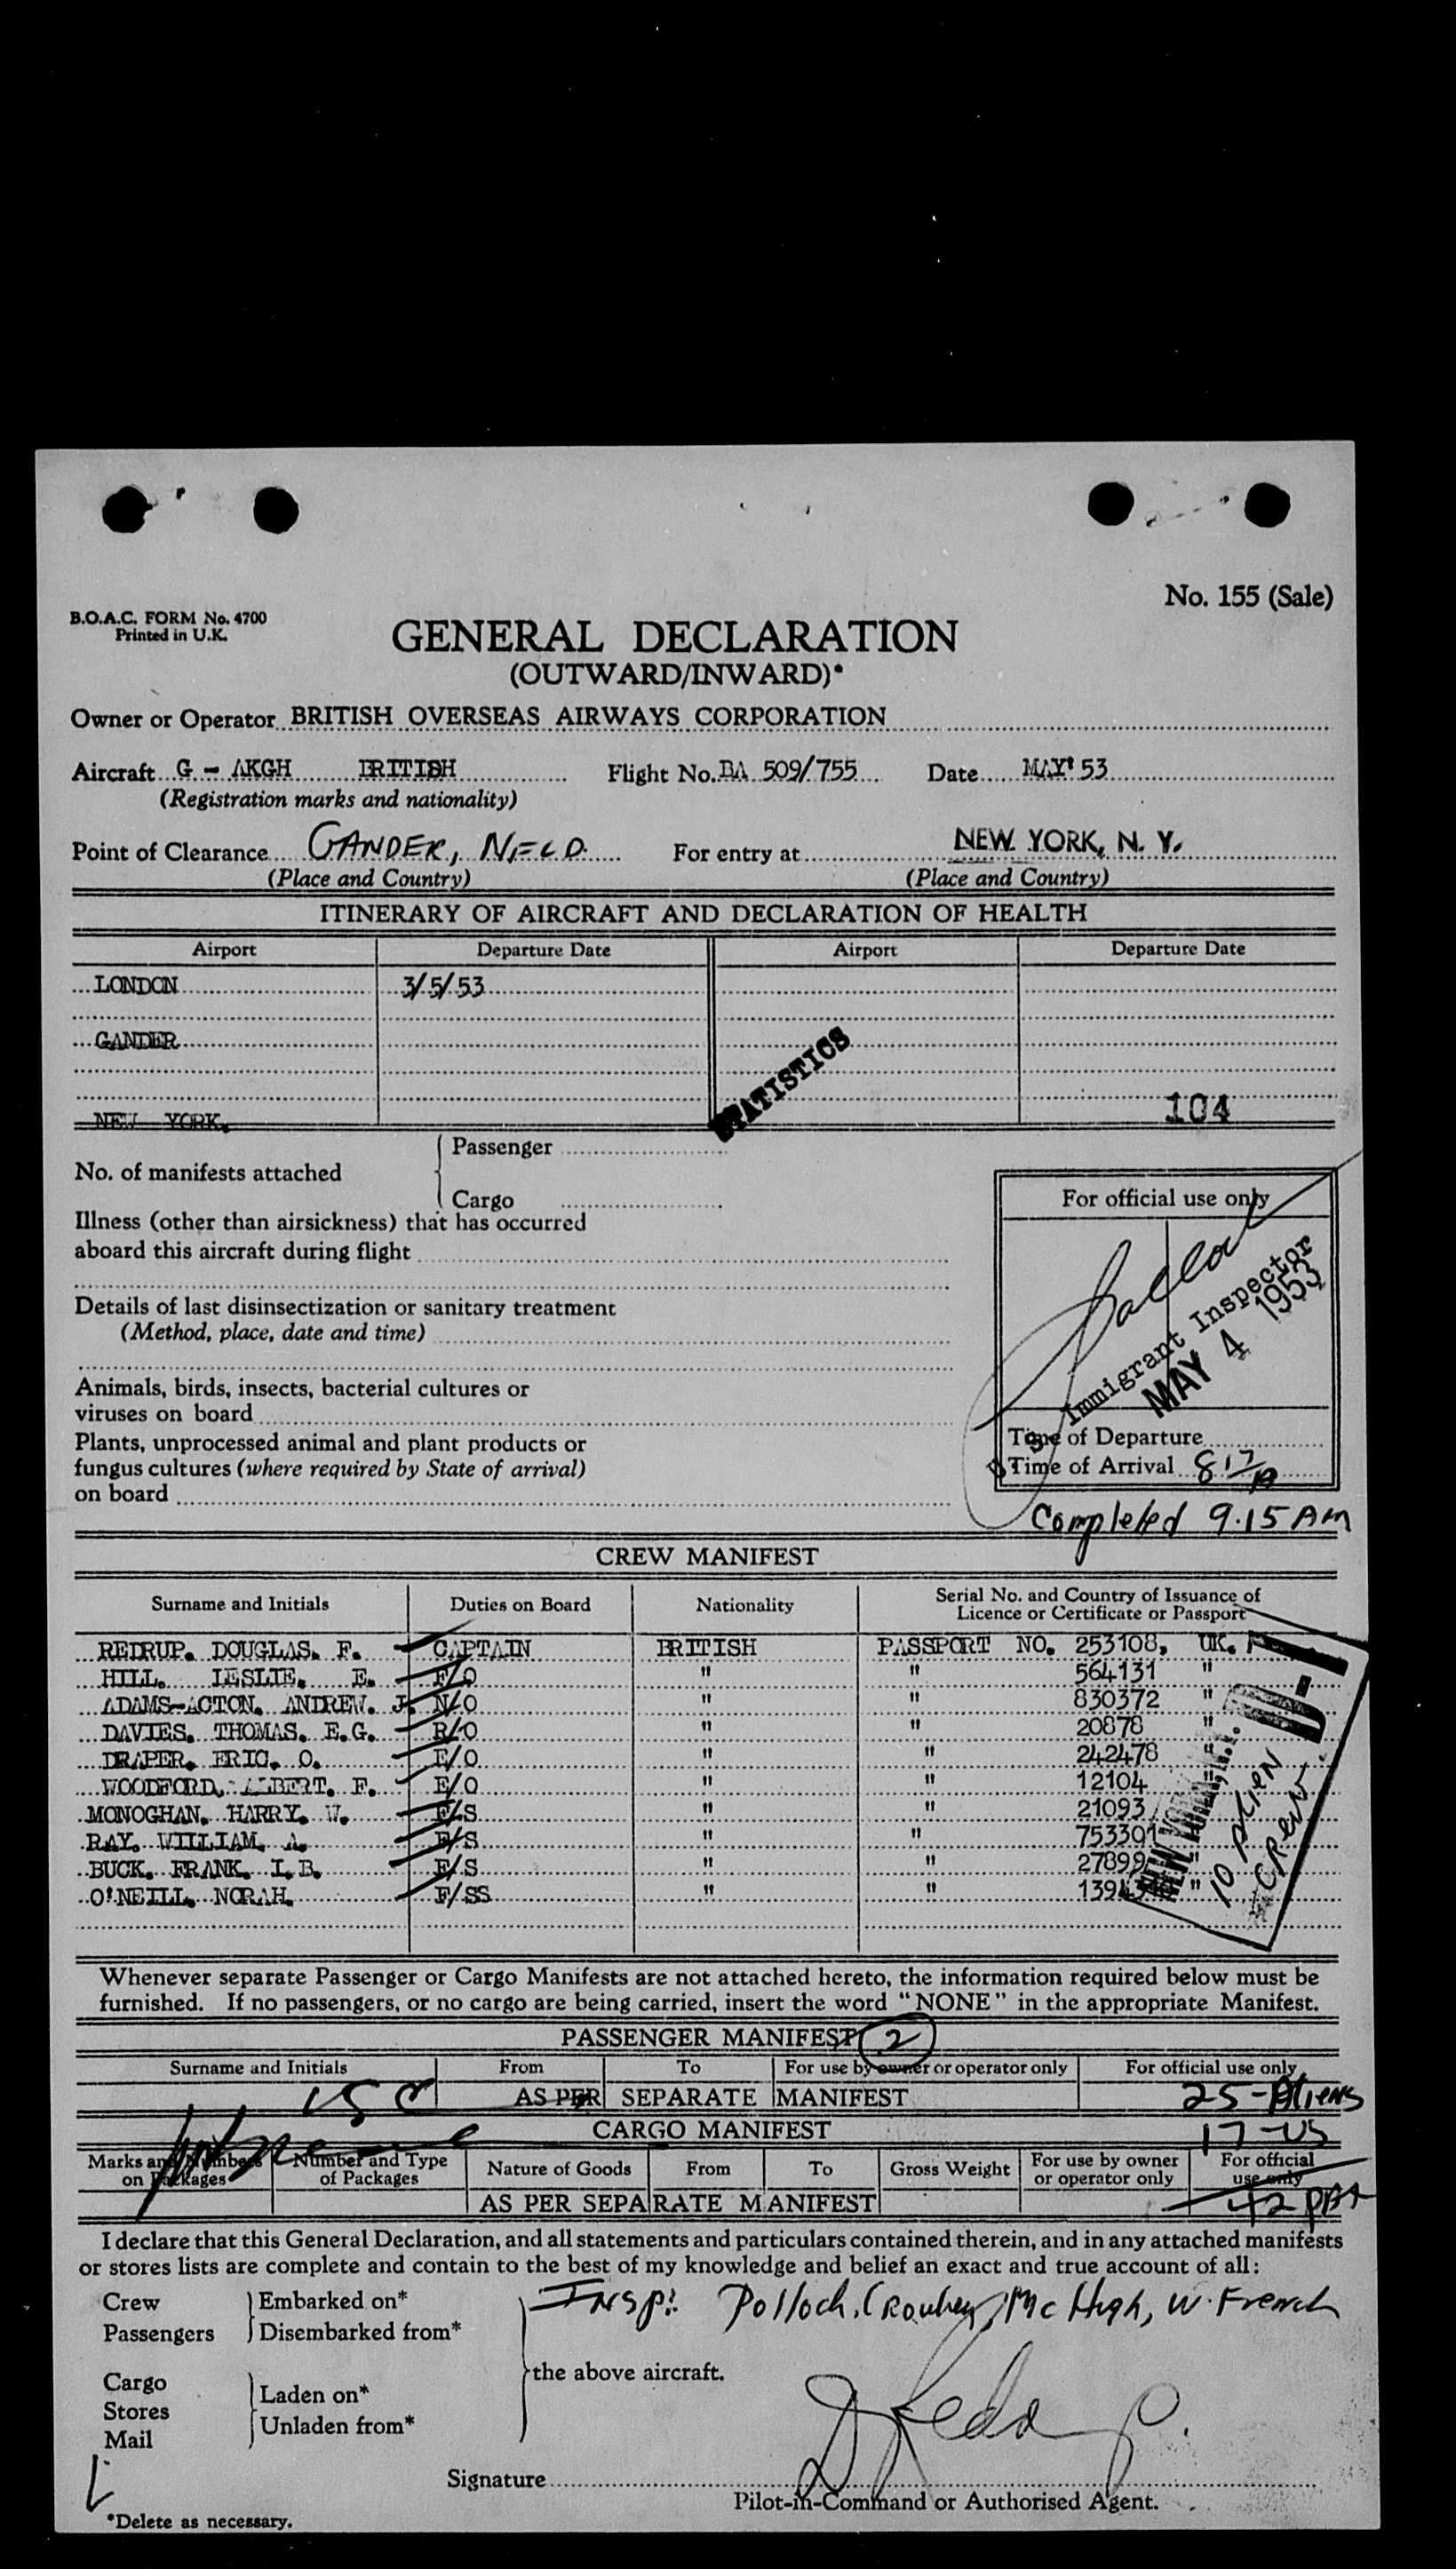 No. 155 (Sale)
B.O.A.C. FORM No. 4700
Printed in U.K.
GENERAL DECLARATION
(OUTWARD/INWARD)*
Owner or Operator BRITISH OVERSEAS AIRWAYS CORPORATION
Aircraft G - AKGH BRITISH Flight No. BA 509/755 Date MAY' 53
(Registration marks and nationality)
Point of Clearance GANDER, NFLD. For entry at NEW YORK, N. Y.
(Place and Country) (Place and Country)
ITINERARY OF AIRCRAFT AND DECLARATION OF HEALTH
Airport Departure Date Airport Departure Date
LONDON 3/5/53
GANDER
STATISTICS
NEW YORK. 104
No. of manifests attached
Passenger
Cargo
Illness (other than airsickness) that has occurred
aboard this aircraft during flight
Details of last disinsectization or sanitary treatment
(Method, place, date and time)
Animals, birds, insects, bacterial cultures or
viruses on board
Plants, unprocessed animal and plant products or
fungus cultures (where required by State of arrival)
on board
For official use only
Immigrant Inspector
MAY 4 1953
Time of Departure
Time of Arrival 8 17 A
Completed 9.15 AM
CREW MANIFEST
Surname and Initials Duties on Board Nationality Serial No. and Country of Issuance of Licence or Certificate or Passport
REDRUP. DOUGLAS. F. CAPTAIN BRITISH PASSPORT NO. 253108, UK.
HILL. LESLIE. E. F/O " " 564131 "
ADAMS-ACTON. ANDREW. J. N/O " " 830372 "
DAVIES. THOMAS. E.G. R/O " " 20878 "
DRAPER. ERIC. O. E/O " " 242478 "
WOODFORD. ALBERT. F. E/O " " 12104 "
MONOGHAN. HARRY. W. F/S " " 21093
RAY. WILLIAM. A. F/S " " 753301
BUCK. FRANK. I.B. F/S " " 27899 "
O'NEILL. NORAH. F/SS " " "
NEW YORK, N.Y.
10 Alien
Crew
Whenever separate Passenger or Cargo Manifests are not attached hereto, the information required below must be
furnished. If no passengers, or no cargo are being carried, insert the word "NONE" in the appropriate Manifest.
PASSENGER MANIFEST 2
Surname and Initials From To For use by owner or operator only For official use only
AS PER SEPARATE MANIFEST 25-Aliens
CARGO MANIFEST 17-US
Marks and Numbers on Packages Number and Type of Packages Nature of Goods From To Gross Weight For use by owner or operator only For official use only
AS PER SEPARATE MANIFEST 42
I declare that this General Declaration, and all statements and particulars contained therein, and in any attached manifests
or stores lists are complete and contain to the best of my knowledge and belief an exact and true account of all:
Crew Embarked on*
Passengers Disembarked from*
Insp: Pollock, McHugh, W. French
the above aircraft.
Cargo
Stores
Mail
Laden on*
Unladen from*
Signature
Pilot-in-Command or Authorised Agent.
*Delete as necessary.